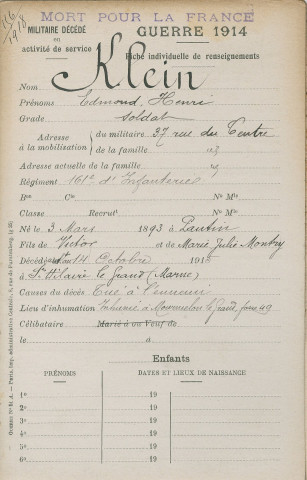 156
1918
MORT POUR LA FRANCE
MILITAIRE DÉCÉDÉ
en
activité de service
GUERRE 1914
Fiche individuelle de renseignements
Nom Klein
Prénoms Edmond Henri
Grade Soldat
Adresse à la mobilisation
du militaire 37 rue du Centre
de la famille id
Adresse actuelle de la famille
Régiment 161e d'Infanterie
Bon Cie No Mle
Classe Recrutt No Mle
Né le 3 Mars 1893 à Pantin
Fils de Victor et de Marie Julie
Décédé 14 Octobre 191
à St Hilaire le Grand (Marne)
Causes du décès Tué à l'ennemi
Lieu d'inhumation Inhumé à Mourmelon le Grand, 49
Célibataire Marié à ou Veuf de
le à
Enfants
PRÉNOMS DATES ET LIEUX DE NAISSANCE
1o 19
2o 19
3o 19
4o 19
5o 19
6o 19